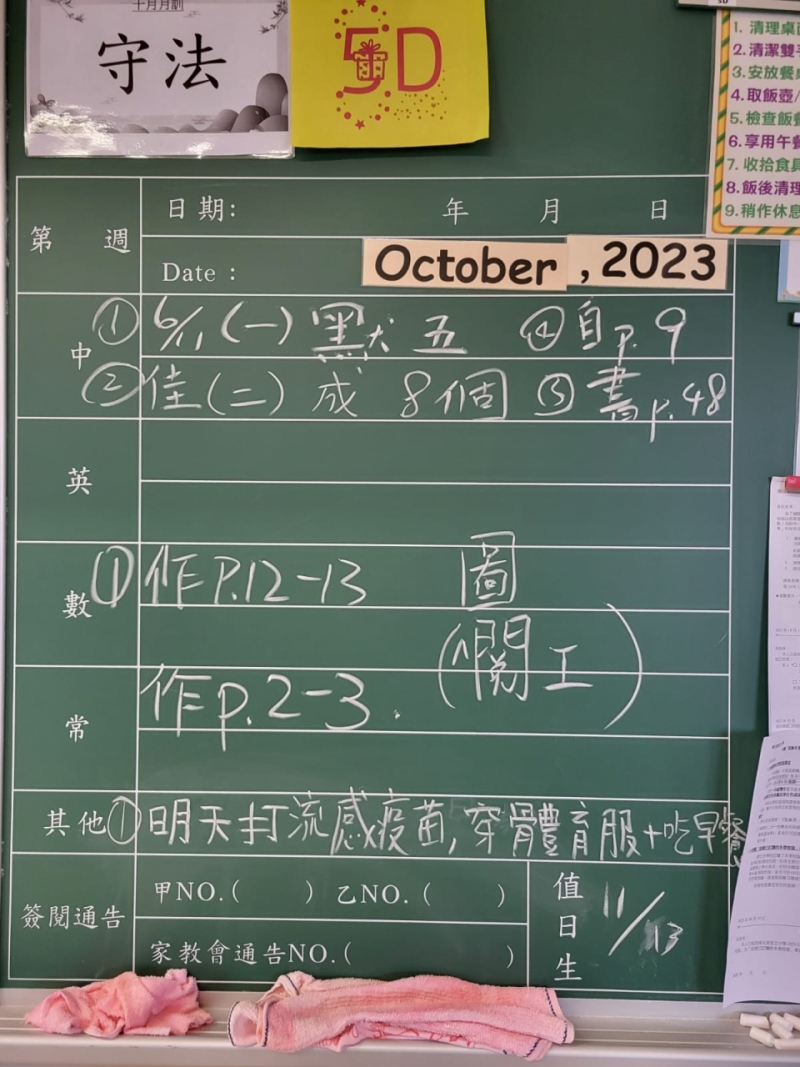 十月月訓
守法
5D
1. 清理桌面
2. 清潔雙手
3. 安放餐
4. 取飯壺/
5. 檢查飯餐
6. 享用午餐
7. 收拾食具
8. 飯後清理
9. 稍作休息
第 週
日期: 年 月 日
Date : October , 2023
中
① 6/11 (一) 黑犬 五 ④ 自 p. 9
② 佳 (二) 成 8個 ⑤ 書 p.48
英
數
① 作P.12-13 圖
(欄工)
常
作p.2-3.
其他
① 明天打流感疫苗,穿體育服+吃早餐
簽閱通告
甲NO.( ) 乙NO.( )
家教會通告NO.( )
值日生
11/13